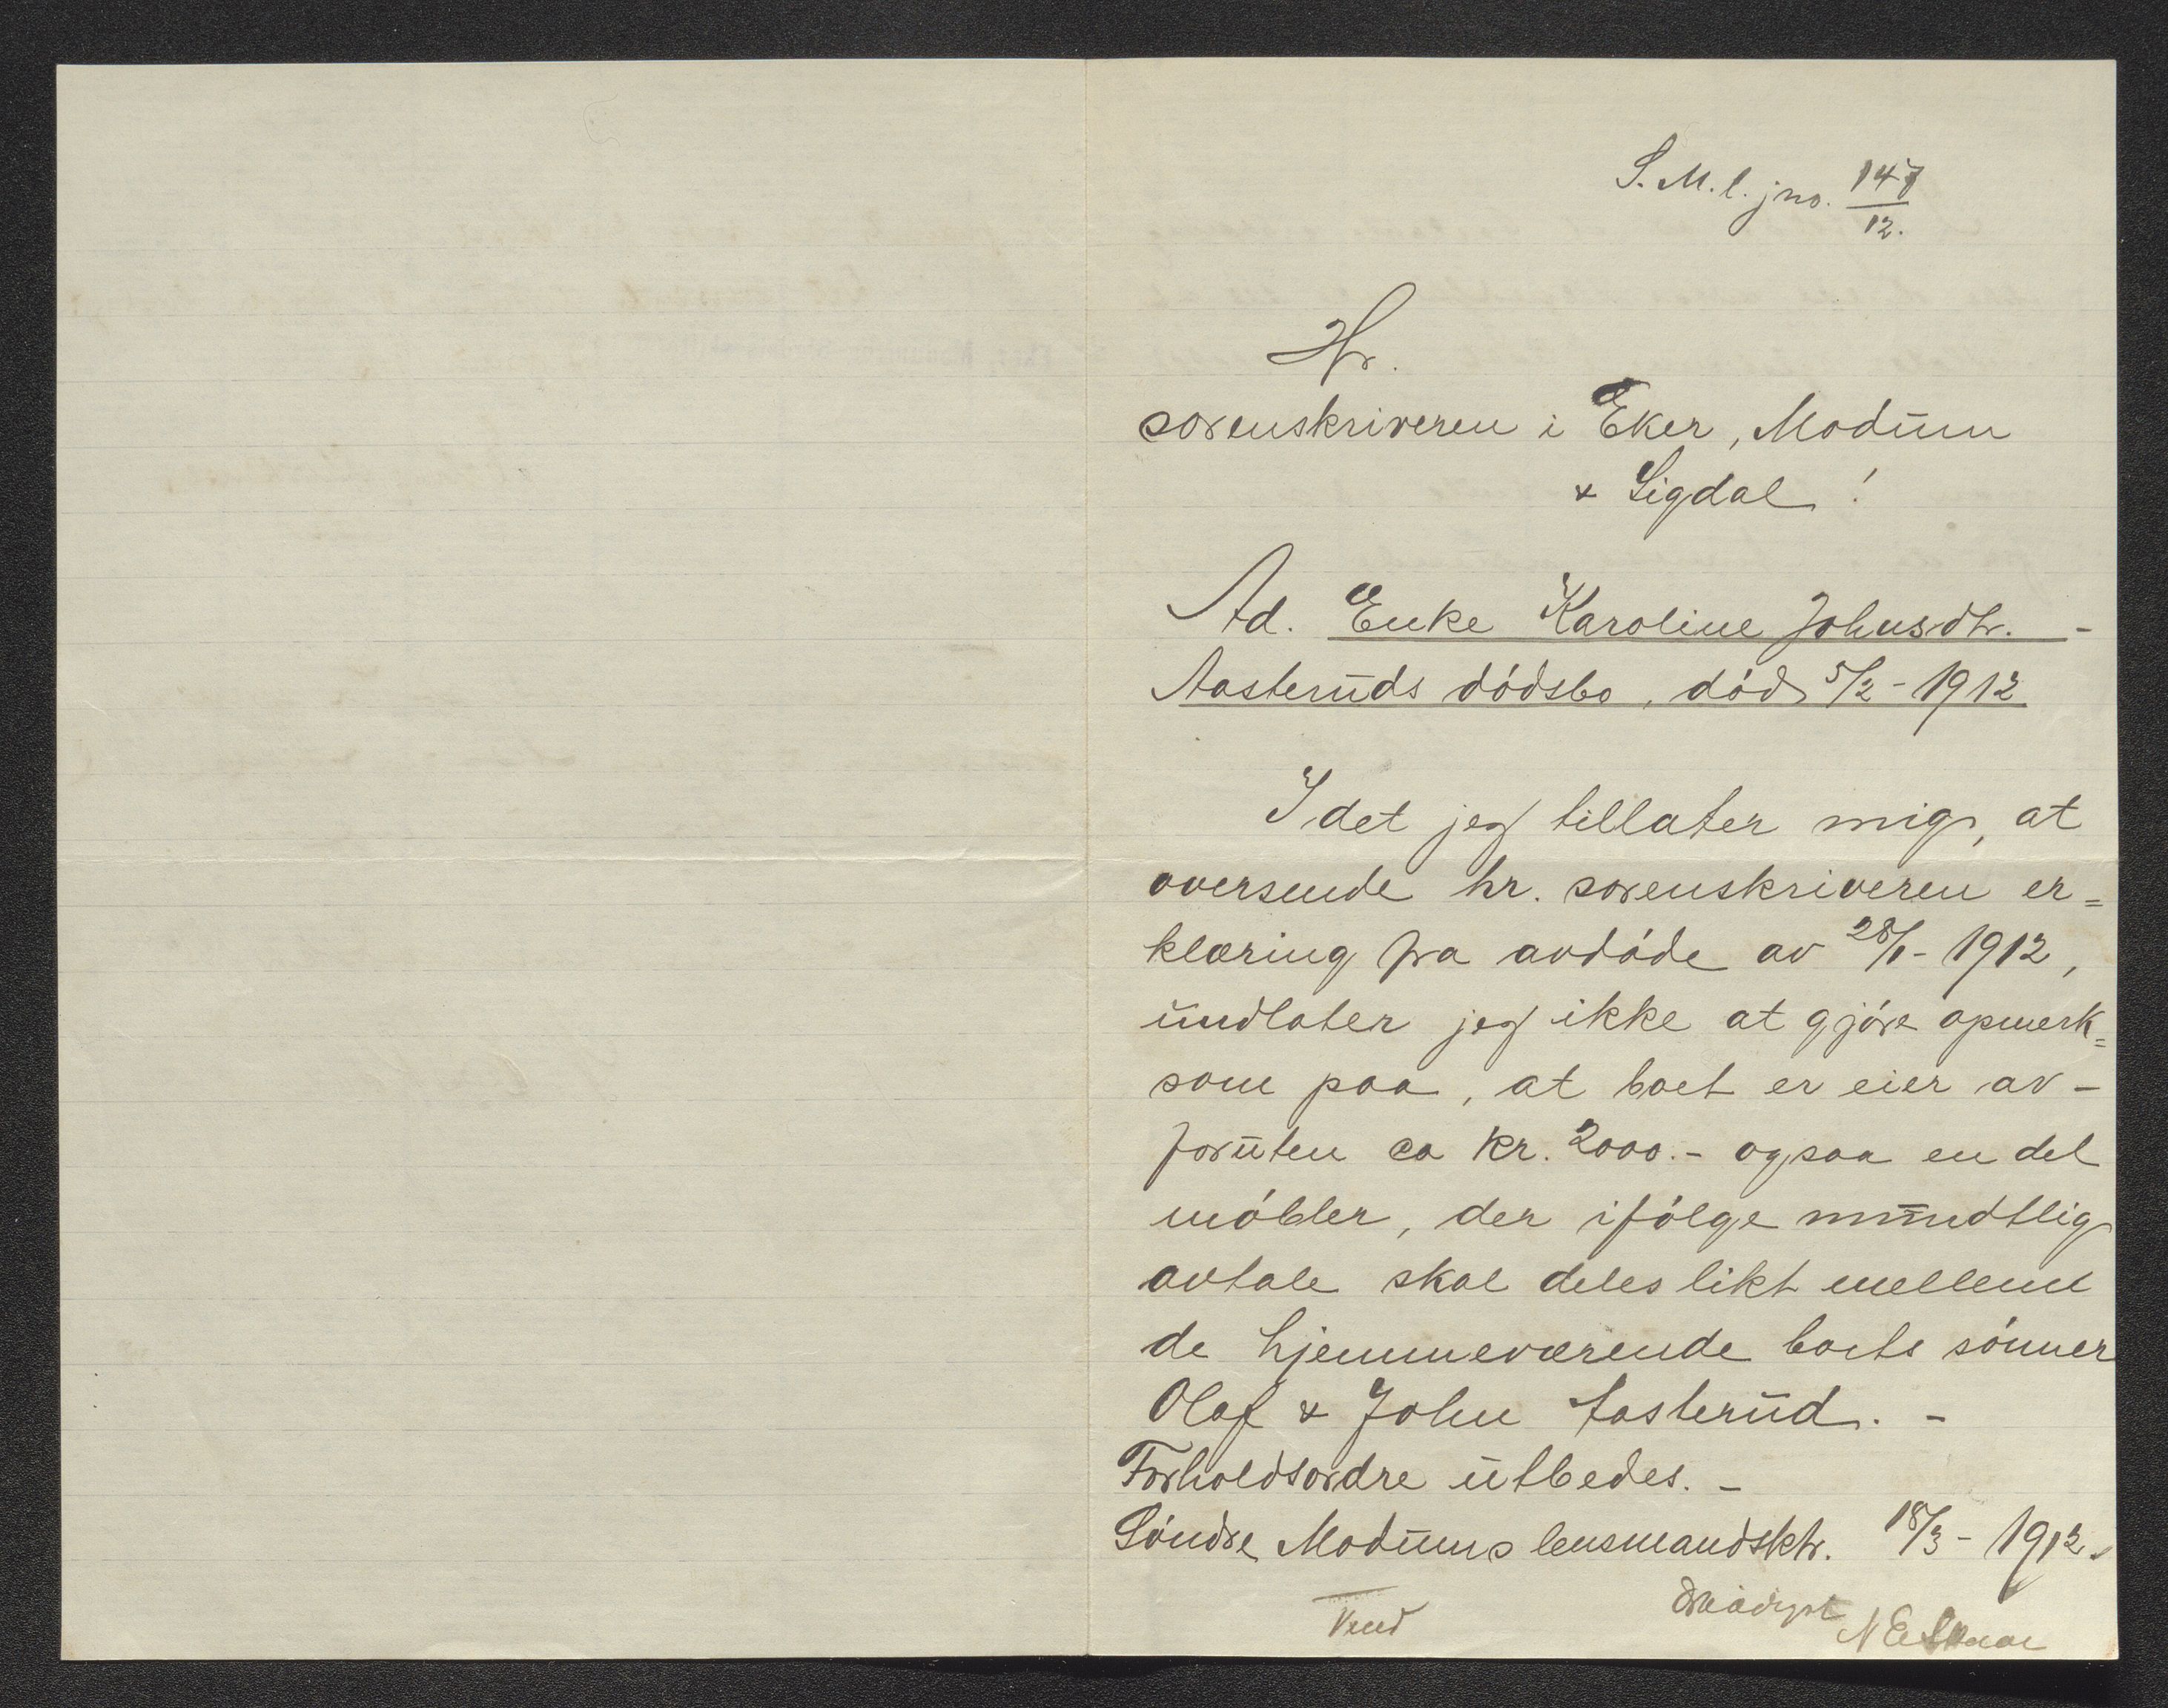 S. M. l. jno. 147/12.
Hr.
sorenskriveren i Eker, Modum
& Sigdal!
Ad. Enke Karoline Johnsdtr. -
Aasteruds dódsbo, dód 5/2 - 1912
I det jeg tillater mig, at
oversende hr. sorenskriveren er=
klæring fra avdóde av 28/1 - 1912,
undlater jeg ikke at gjóre opmerk=
som paa, at boet er eier av -
foruten ca kr. 2000.- ogsaa en del
móbler, der ifólge mundtlig
avtale skal deles likt mellem
de hjemmeværende boets sónner
Olaf & John Aasterud. -
Forholdsordre utbedes. -
Sóndre Modums lensmandsktr. 18/3 - 1912.
Vend
ærbódigst